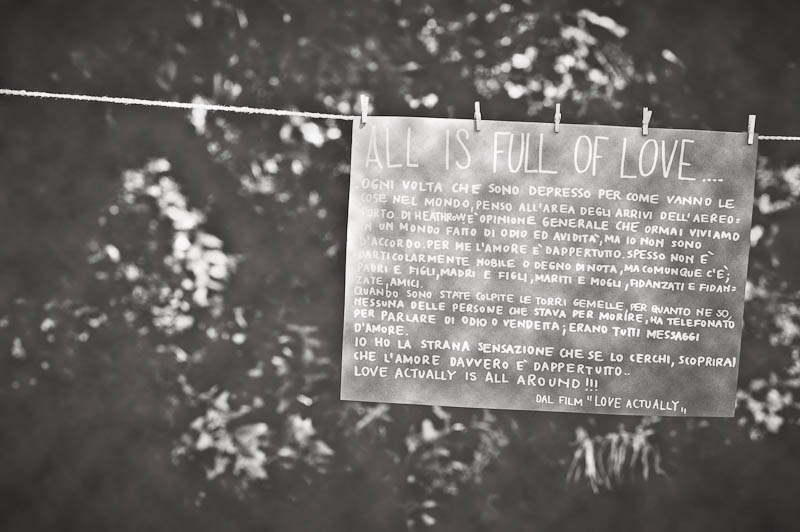 ALL IS FULL OF LOVE....
OGNI VOLTA CHE SONO DEPRESSO PER COME VANNO LE
COSE NEL MONDO, PENSO ALL'AREA DEGLI ARRIVI DELL'AEREO=
PORTO DI HEATHROW E' OPINIONE GENERALE CHE ORMAI VIVIAMO
IN UN MONDO FATTO DI ODIO ED AVIDITA', MA IO NON SONO
D'ACCORDO. PER ME L'AMORE E' DAPPERTUTTO. SPESSO NON E'
PARTICOLARMENTE NOBILE O DEGNO DI NOTA, MA COMUNQUE C'E';
PADRI E FIGLI, MADRI E FIGLI, MARITI E MOGLI, FIDANZATI E FIDAN=
ZATE, AMICI.
QUANDO SONO STATE COLPITE LE TORRI GEMELLE, PER QUANTO NE SO,
NESSUNA DELLE PERSONE CHE STAVA PER MORIRE, HA TELEFONATO
PER PARLARE DI ODIO O VENDETTA; ERANO TUTTI MESSAGGI
D'AMORE.
IO HO LA STRANA SENSAZIONE CHE SE LO CERCHI, SCOPRIRAI
CHE L'AMORE DAVVERO E' DAPPERTUTTO..
LOVE ACTUALLY IS ALL AROUND!!!
DAL FILM "LOVE ACTUALLY"